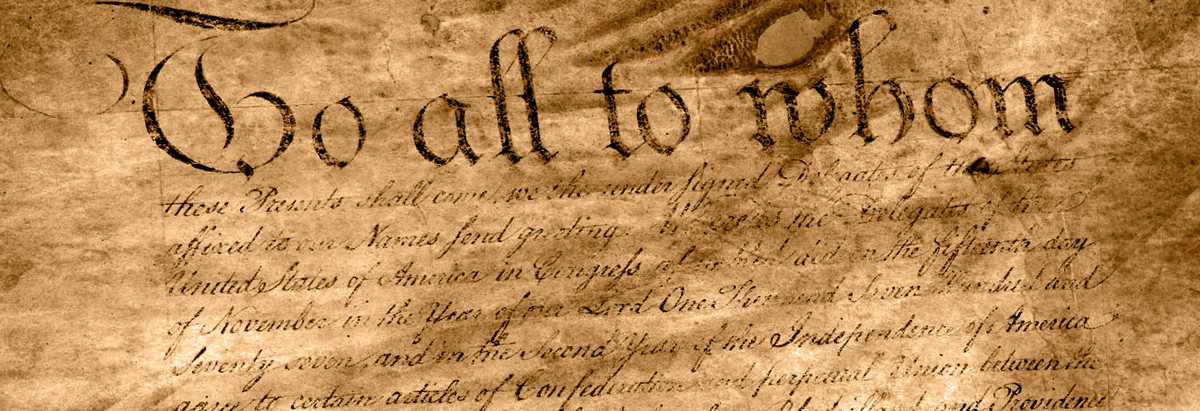 To all to whom
these Presents shall come, we the under signed Delegates of the States
affixed to our Names send greeting. Whereas the Delegates of the
United States of America in Congress assembled did on the fifteenth day
of November in the Year of our Lord One Thousand Seven Hundred and
Seventy seven, and in the Second Year of the Independence of America
agree to certain articles of Confederation and perpetual Union between the
and Providence